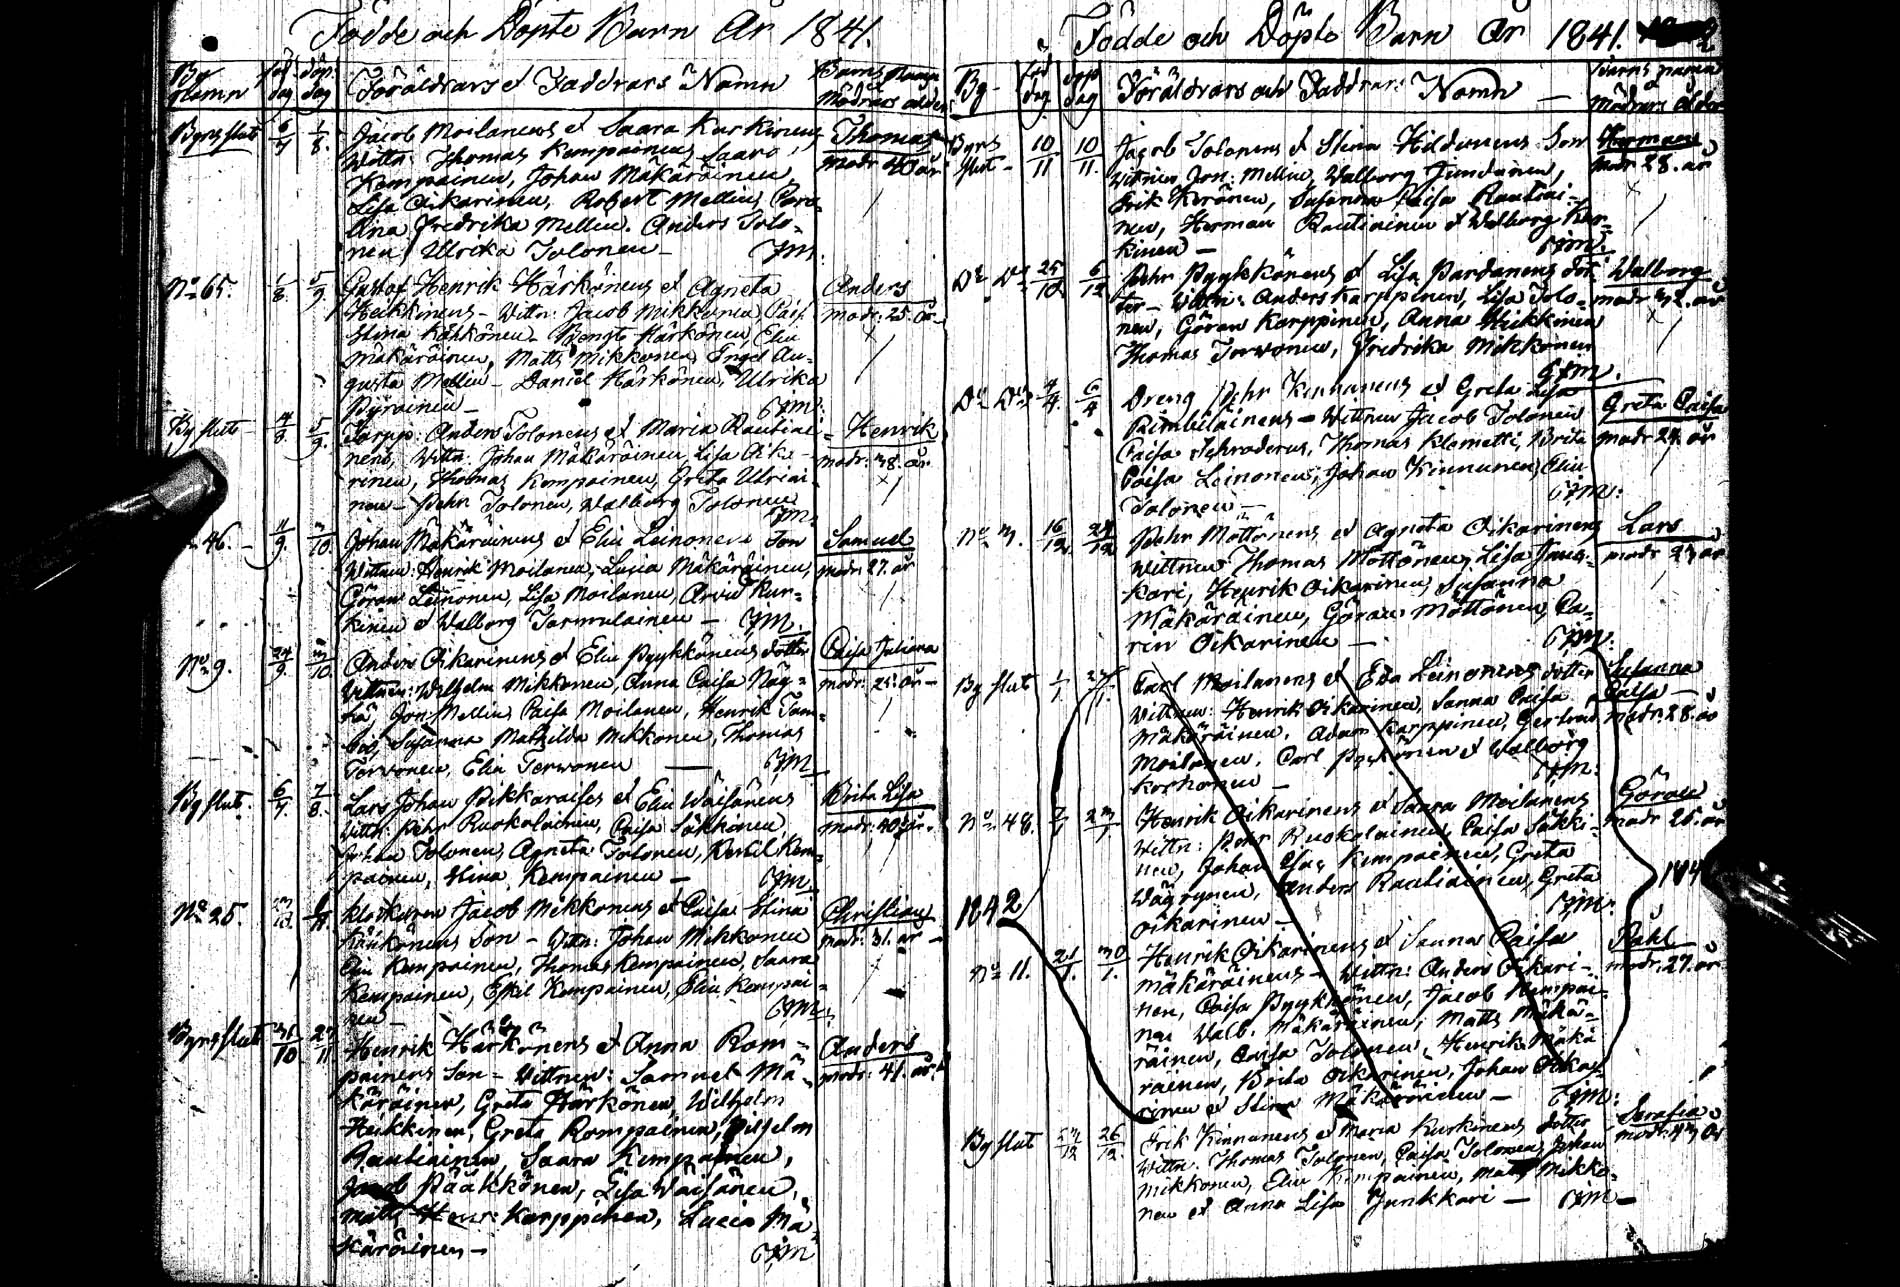 Födde och Döpte Barn År 1841.
By
namn
föd
dag
döp:
dag
Föräldrars et Faddrars Namn
Barns Namn
Mödrars ålder
Byns slut 6/7 1/8.
Jacob Moilanens et Saara Kurkinens
Wittn: Thomas Kempainen, Saara
Kempainen, Johan Mäkäräinen,
Lisa Oikarinen, Robert Mellin, Caro-
lina Fredrika Mellin. Anders Tolo-
nen, Ulrika Tolonen –
Thomas
modr 40 år
No 65. 1/8. 5/9.
Gustaf Henrik Härkönens et Agneta
Heikkinens – Wittn: Jacob Mikkonen, Caisa
Stina Kähkönen – Bengt Härkönen, Elin
Mäkäräinen, Matts Mikkonen, Engel Au-
gusta Mellin – Daniel Härkönen, Ulrika
Pyrainen –
Anders
modr: 25. år –
By slut 4/8 5/9.
Torpp: Anders Tolonens et Maria Rautiai-
nens, Wittn: Johan Mäkäräinen, Lisa Oika-
rinen, Thomas Kempainen, Greta
nen – Pehr Tolonen, Walborg Tolonen
Henrik
modr: 38. år
46. 11/9. 3/10.
Johan Mäkäräinens et Elin Leinonens Son
Wittnen: Henrik Moilanen, Lucia Mäkäräinen,
Göran Leinonen, Lisa Moilanen, Arvid Kur-
kinen et Walborg Tormulainen –
Samuel
modr. 27. år
No 9. 24/9. 3/10.
Anders Oikarinens et Elin Pyykkönens dotter
Wittnen: Wilhelm Mikkonen, Anna Caisa Näy-
hä, Jon Mellin, Caisa Moilanen, Henrik
Susanna Mathilda Mikkonen, Thomas
Terwonen, Elin Terwonen
Caisa Juliana
modr: 25. år –
By slut. 6/7. 7/8.
Lars Johan Pikkaraises et Elin Wäisänens
Wittn: Pehr Ruokolainen, Caisa Säkkinen,
Johan Tolonen, Agneta Tolonen, Bertil Kem-
painen, Stina Kempainen –
Brita Lisa
modr: 40 år.
No 25.
Jacob Mikkonens et Caisa Stina
Son – Wittn: Johan Mikkonen
Elin Kempainen, Thomas Kempainen, Saara
Kempainen, Eskil Kempainen, Elin Kempai-
nen –
Christian
modr: 31. år –
Byns slut 31/10 27/11
Henrik Härkönens et Anna Rom-
painens Son – Wittnen: Samuel Mä-
käräinen, Greta Härkönen, Wilhelm
Heikkinen, Greta Rompainen, Wilhelm
Rautiainen, Saara Kempainen,
Jacob Pääkkönen, Lisa Wäisänen,
Matts Henr: Karppinen, Lucia Mä-
käräinen –
Anders
modr: 41. år
Födde och Döpte Barn År 1841.
By
föd
dag
döp
dag
Föräldrars och Faddrars Namn –
Barns namn
Mödrars ålder
Byns
slut – 10/11 10/11.
Jacob Tolonens et Stina Hildunens Son
Wittnen Jon: Mellin, Walborg Jundunen,
Erik Keränen, Susanna Caisa Rautiai-
nen, Herman Rautiainen et Walborg Kur-
kinen –
Herman
modr 28. år
Do Do 25/10 6/12
Pehr Pyykkönens et Lisa Pardanens dot-
ter – Wittn: Anders Karppinen, Lisa Tolo-
nen, Göran Karppinen, Anna Heikkinen
Thomas Torwonen, Fredrika Mikkonen
Walborg
modr 32. år
Do Do 4/4. 6/4
Dreng Pehr Kinnunens et Greta Lisa
Rimbiläinens – Wittnen Jacob Tolonen
Caisa Schroderus, Thomas Klametti, Brita
Caisa Leinonen, Johan Kinnunen, Elin
Tolonen –
Greta Caisa
modr 24. år
No 3. 16/12. 24/12
Pehr Möttönens et Agneta Oikarinens
Wittnen Thomas Möttönen, Lisa Juu-
kari, Henrik Oikarinen, Susanna
Mäkäräinen, Göran Möttönen, Ca-
rin Oikarinen –
Lars
modr 23 år
By slut 1/1.
Carl Moilanens et Eva Leinonens dotter
Wittnen: Henrik Oikarinen, Sanna Caisa
Mäkäräinen, Adam Karppinen, Gertrud
Moilanen, Carl Pyykkönen et Walborg
Korhonen –
Susanna
Caisa –
modr. 28. år
No 48. 7/1 23/1
Henrik Oikarinens et Saara Moilanens
Wittn: Pehr Ruokolainen, Caisa Säkki-
nen, Johan Elias Kempainen, Greta
Wäyrynen, Anders Rautiainen, Greta
Oikarinen –
Göran
modr 26. år
1842
184
No 11. 21/1. 30/1.
Henrik Oikarinens et Sanna Caisa
Mäkäräinens – Wittn: Anders Oikari-
nen, Caisa Pyykkönen, Jacob Kempai-
nen Walb. Mäkäräinen, Matts Mäkä-
räinen, Caisa Tolonen, Henrik Mäkä
räinen, Brita Oikarinen, Johan Oika-
rinen et Stina Mäkäräinen –
Påhl
modr. 27. år
By slut 23/12 26/12.
Erik Kinnunens et Maria Kurkinens dotter
Wittn: Thomas Tolonen, Caisa Tolonen, Johan
Mikkonen, Elin Kempainen, Matts Mikko-
nen et Anna Lisa Junkkari –
Serafia
modr. 43 år